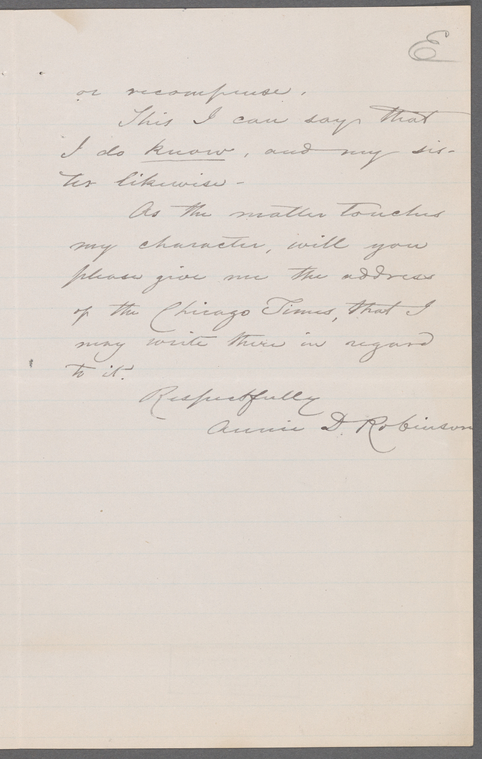 E
or recompense.
This I can say, that
I do know, and my sis-
ter likewise -
As the matter touches
my character, will you
please give me the address
of the Chicago Times, that I
may write there in regard
to it.
Respectfully
Annie D. Robinson